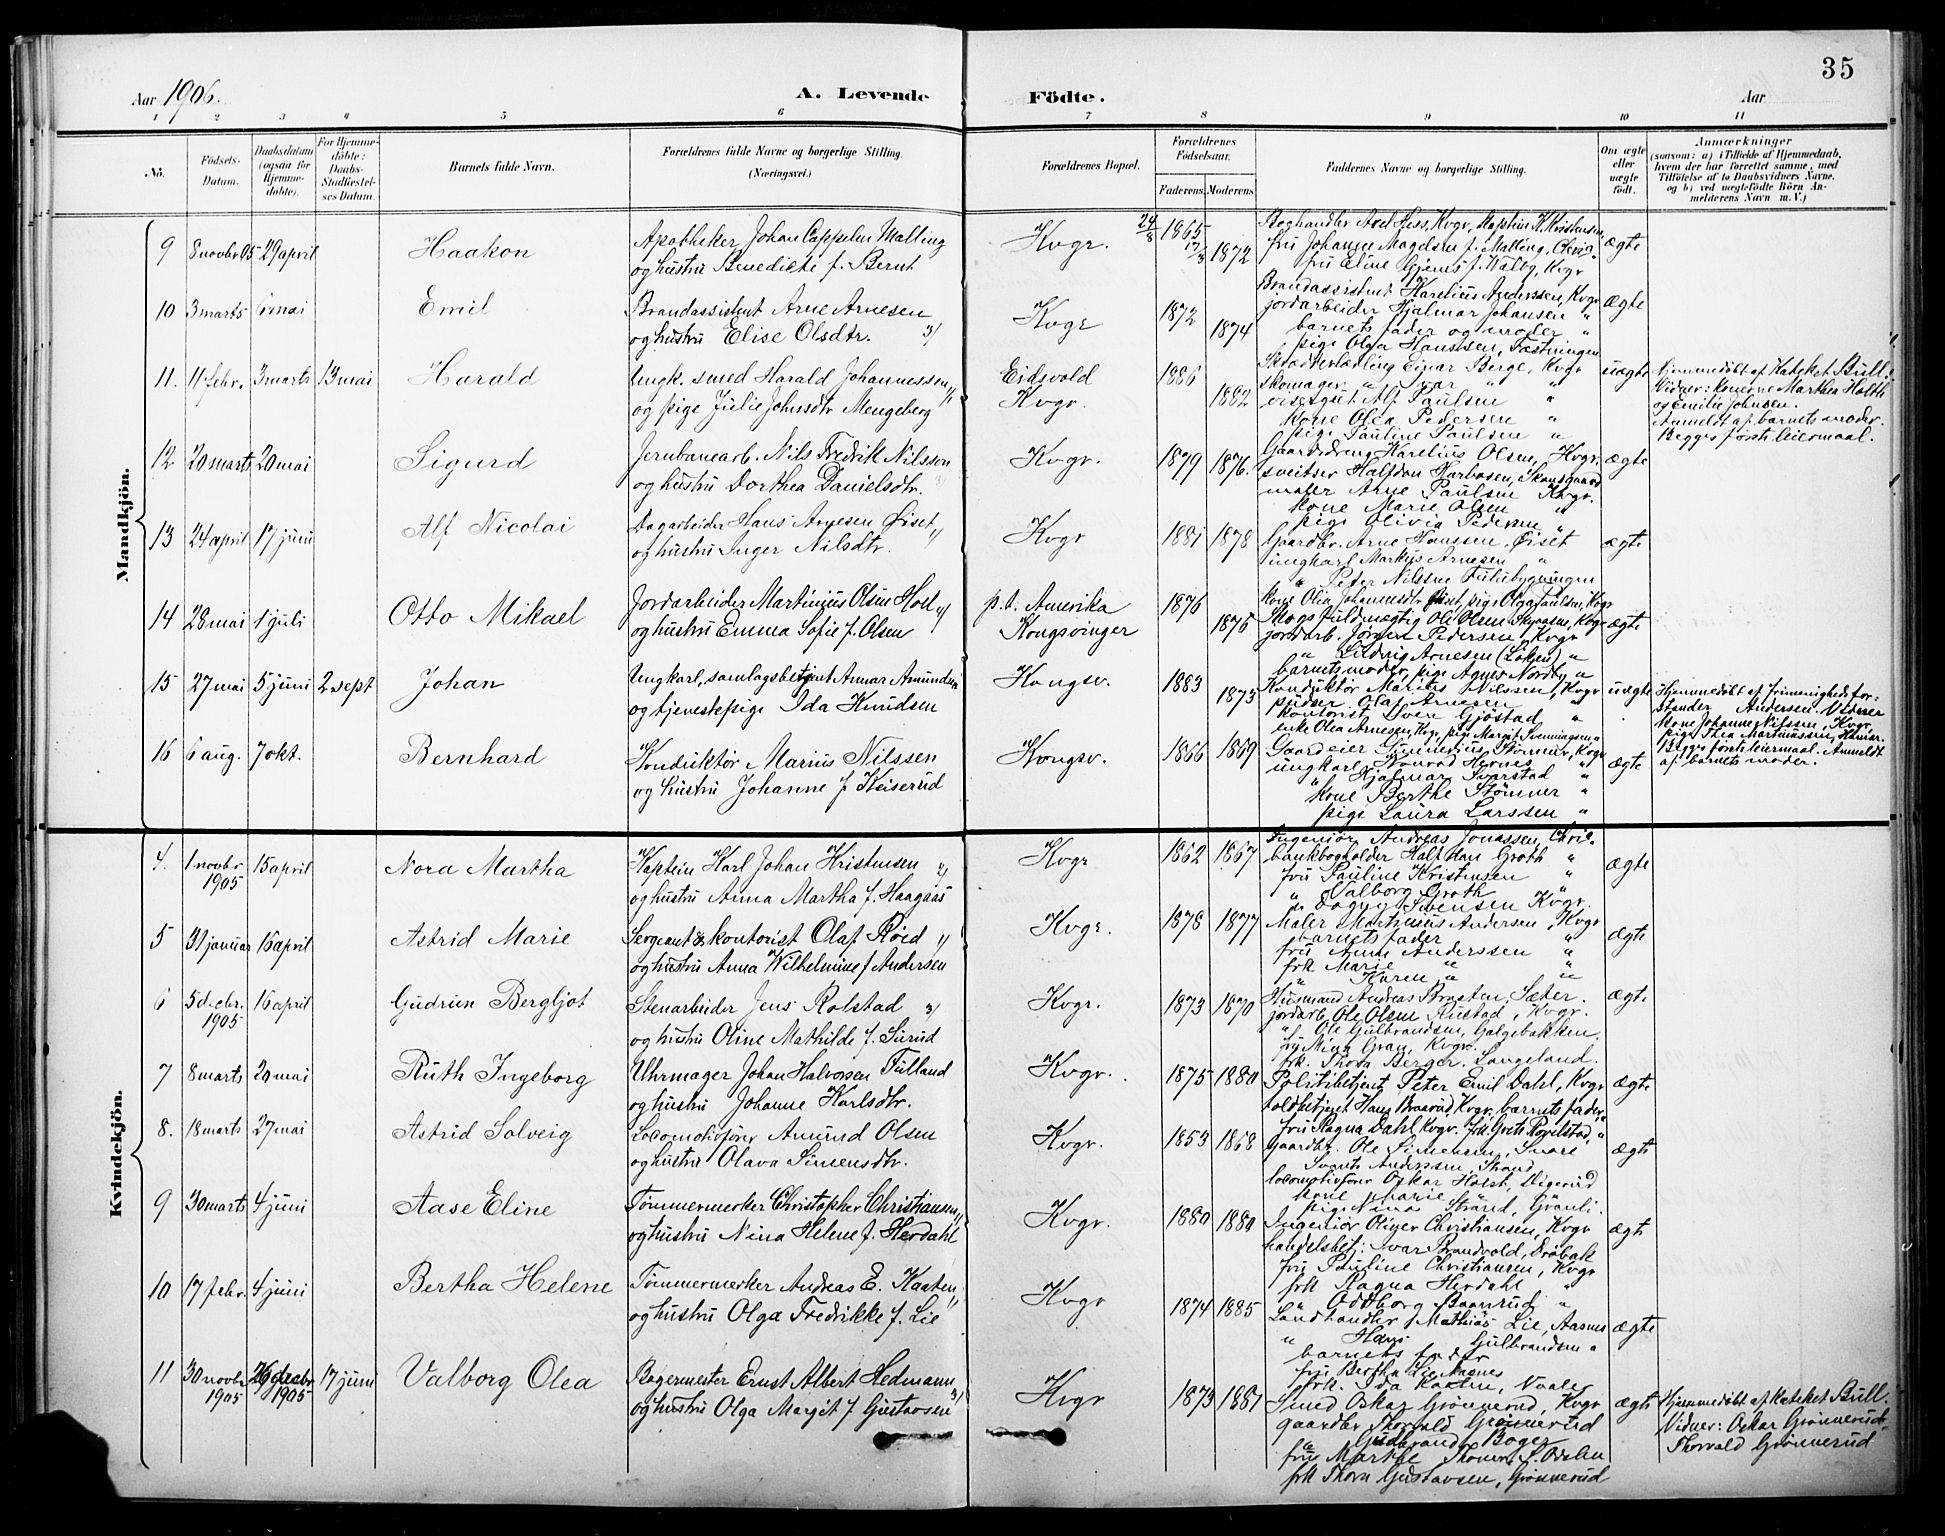 35
Aar 1906.
A. Levende Födte.
Aar
1 2 3 4 5 6 7 8 9 10 11
No.
Födsels-Datum.
Daabsdatum (ogsaa for Hjemme-döbte).
For Hjemme-döbte: Daabs-Stadfæstel-ses Datum.
Barnets fulde Navn.
Forældrenes fulde Navne og borgerlige Stilling. (Næringsvei.)
Forældrenes Bopæl.
Forældrenes Födselsaar.
Faderens. Moderens.
Faddernes Navne og borgerlige Stilling.
Om ægte eller uægte födt.
Anmærkninger
(saasom: a) i Tilfælde af Hjemmedaab, hvem der har forrettet samme, med Tilföielse af to Daabsvidners Navne. og b) ved uægtefödte Börn An-melderens Navn m. V.)
Mandkjön.
9 8 novbr 05 29 april Haakon
Apotheker Johan Cappelen Malling
og hustru Benedicte f. Bernt
Kvgr. 24/8 1865 17/3 1872
Boghandler Axel Hess, Kvgr, Kaptein K. Kristensen,
fru Johanne Magelsen f. Malling, Chria
fru Eline Gjems f. Walby, Kvgr
ægte
10 3 marts 6 mai Emil
Brandassistent Arne Arnesen
og hustru Elise Olsdtr.
Kvgr 1872 1874
Brandassistent Karelius Anderssen, Kvgr
jordarbeider Hjalmar Johansen "
barnets fader og moder "
pige Olga Hanssen, Fæstningen
ægte
11. 11 febr. 3 marts 13 mai Harald
Ungk. smed Harald Johannessen
og pige Julie Johnsdtr Mengeberg
Eidsvold
Kvgr. 1886 1882
Skrædderlærling Einar Berge, Kvgr
skomager " Ivar " "
visergut Alf Paulsen "
kone Olea Pedersen "
pige Pauline Paulsen "
uægte
Hjemmedöbt af Kateket Bull.
Vidner: konerne Marthea Holth
og Emilie Johnsen.
Anmeldt af barnets moder.
Begges förste leiermaal.
12 20 marts 20 mai Sigurd
Jernbanearb. Nils Fredrik Nilsson
og hustru Dorthea Danielsdtr.
Kvgr. 1879 1876.
Gaardsdreng Karelius Olsen, Kvgr,
sveitser Halfdan Karbasen, Skansgaard
maler Arne Paulsen Kvgr.
kone Marie Olsen "
pige Olivia Pedersen "
ægte
13 24 april 17 juni Alf Nicolai
Dagarbeider Hans Arnesen Öiset
og hustru Inger Nilsdtr.
Kvgr 1881 1878
Gaardbr. Arne Hanssen, Öiset
ungkarl Markus Arnesen "
" Peter Nilssen Fulubygningen
kone Olia Johannesdtr Öiset, pige Olga Paulsen, Kvgr
ægte
14 28 mai 1 juli Otto Mikael
Jordarbeider Martinius Olsen Hoel
og hustru Emma Sofie f. Olsen
p.t. Amerika
Kongsvinger 1876 1875
Skogsfuldmægtig Ole Olsen Kvgr
jordarb. Jörgen Pedersen, Kvgr
" Ludvig Arnesen (Löken) "
barnets moder, pige Agnes Nordby "
ægte
15 27 mai 5 juni 2 sept Johan
Ungkarl, samlagsbetjent Annar Amundsen
og tjenestepige Ida Knudsen
Kongsv. 1883 1873
Konduktör Marius Nilssen, Kvgr
pudser Olaf Arnesen "
kontorist Sven Gjöstad "
enke Olea Arnesen, Kvgr, pige Margit Svenningsen "
uægte
Hjemmedöbt af frimenighedsfor-
stander Andersen. Vidner
kone Johanne Nilssen, Kvgr,
pige Thea Martinussen, Hamar.
Begges förste leiermaal. Anmeldt
af barnets moder.
16 6 aug. 7 okt. Bernhard
Konduktör Marius Nilssen
og hustru Johanne f Keiserud
Kongsv. 1866 1869
Gaardeier Störmer, Kvgr
ungkarl Konrad Hernes "
" Hjalmar Svarstad "
kone Berthe Störmer "
pige Laura Larssen "
ægte
Kvindekjön.
4. 1 novbr 1905 15 april Nora Martha
Kaptein Karl Johan Kristensen
og hustru Anna Martha f. Haagaas
Kvgr 1862 1867
Ingeniör Andreas Jonassen, Chria.
bankbogholder Halfdan Groth "
fru Pauline Kristensen "
" Valborg Groth "
fr. Dagny Svensen Kvgr.
ægte
5 31 januar 16 april Astrid Marie
Sergeant & kontorist Olaf Röed
og hustru Anna Wilhelmine f Andersen
Kvgr. 1878 1877
Maler Martinius Andersen, Kvgr
barnets fader "
fru Anna Anderssen "
frk Marie " "
" Karen " "
ægte
6 5 decbr. 1905 16 april Gudrun Bergljot
Stenarbeider Jens Rolstad
og hustru Oline Mathilde f. Surud
Kvgr. 1873 1870
Husmand Andreas Braaten, Sæter.
jordarb. Ole Olsen Rustad, Kvgr.
" Ole Gulbrandsen, Galgebakken.
fru Mina Gran, Kvgr.
frk. Thora Berger, Langeland.
ægte
7 8 marts 20 mai Ruth Ingeborg
Uhrmager Johan Halvorsen Fulland
og hustru Johanne Karlsdtr.
Kvgr. 1875 1880
Politibetjent Peter Emil Dahl, Kvgr
toldbetjent Hans Braarud, Kvgr, barnets fader,
fru Ragna Dahl, Kvgr. frk Grete Rogelstad, "
ægte
8. 18 marts 27 mai Astrid Solveig
Locomotivförer Amund Olsen
og hustru Olava Simensdtr.
Kvgr. 1853 1868
Gaardbr. Ole Simensen, Svare
Svante Anderssen, Strand
locomotivförer Oskar Holst, Digerud
kone Marie "
pige Nina Strand, Grönli.
ægte
9 30 marts 4 juni Aase Eline
Tömmermerker Christopher Christiansen
og hustru Nina Helene f. Herdahl
Kvgr. 1880 1880
Ingeniör Oliver Christiansen, Kvgr
handelsbetj: Ivar Brandvold, Dröbak
fru Pauline Christiansen, Kvgr
frk Ragna Herdahl "
" Oddborg Baanrud "
ægte
10 17 febr. 4 juni Bertha Helene
Tömmermerker Andreas E. Kaaten
og hustru Olga Fredrikke f. Lie
Kvgr 1874 1885
Landhandler Mathias Lie, Aasnes
" Hans Gulbrandsen "
barnets fader
fru Bertha Lie Aasnes
frk. Ida Kaaten, Vaaler
ægte
11 30 novbr 1905 26 decbr 1905 17 juni Valborg Olea
Bagermester Ernst Albert Hedmann
og hustru Olga Margit f Gustavsen
Kvgr 1873 1881
Smed Oskar Grönnerud, Kvgr
gaardbr Thorvald Grönnerud
" Gudbrand Boger
fru Marthe Thoner, S. Odalen
frk Thora Gustavsen, Grönnerud
ægte
Hjemmedöbt af kateket Bull.
Vidner: Oskar Grönnerud
Thorvald Grönnerud